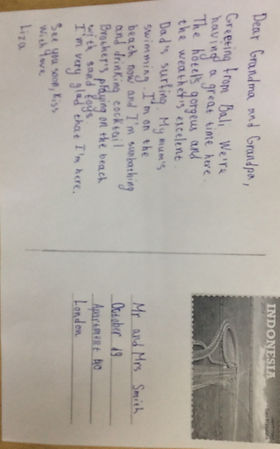 Dear Grandma and Grandpa,
Greeting from Bali. We're
having a great time here.
The hotel's gorgeus and
the weather's excelent.
Dad's surfing. My mum's
swimming. I'm on the
beach now and I'm sunbathing
and drinking cocktail
Brother's playing on the beach
with sand toys
I'm very glad that I'm here.
See you soon, kiss
With love
Liza
INDONESIA
Mr and Mrs Smith
October 19
Apartment 40
London